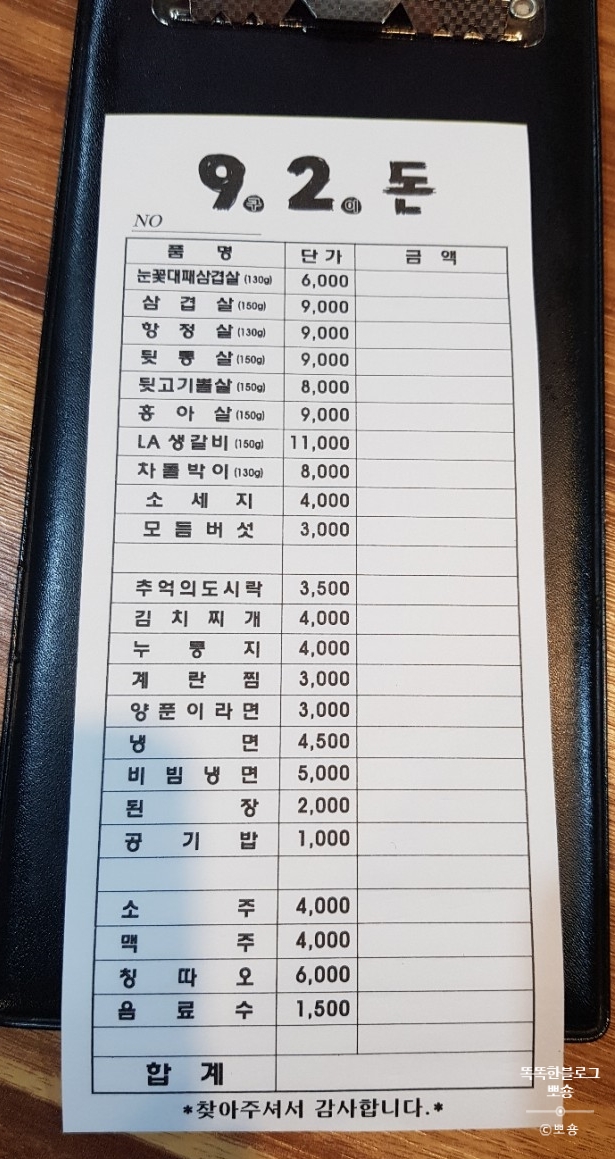 9.구 2.이 돈
NO
품 명 단 가 금 액
눈꽃대패삼겹살 (130g) 6,000
삼 겹 살 (150g) 9,000
항 정 살 (130g) 9,000
뒷 통 살 (150g) 9,000
뒷고기뽈살 (150g) 8,000
홍 아 살 (150g) 9,000
LA 생갈비 (150g) 11,000
차 돌 박 이 (130g) 8,000
소 세 지 4,000
모 듬 버 섯 3,000
추억의도시락 3,500
김 치 찌 개 4,000
누 룽 지 4,000
계 란 찜 3,000
양 푼 이 라 면 3,000
냉 면 4,500
비 빔 냉 면 5,000
된 장 2,000
공 기 밥 1,000
소 주 4,000
맥 주 4,000
칭 따 오 6,000
음 료 수 1,500
합 계
*찾아주셔서 감사합니다.*
똑똑한블로그
뽀숑
©뽀숑